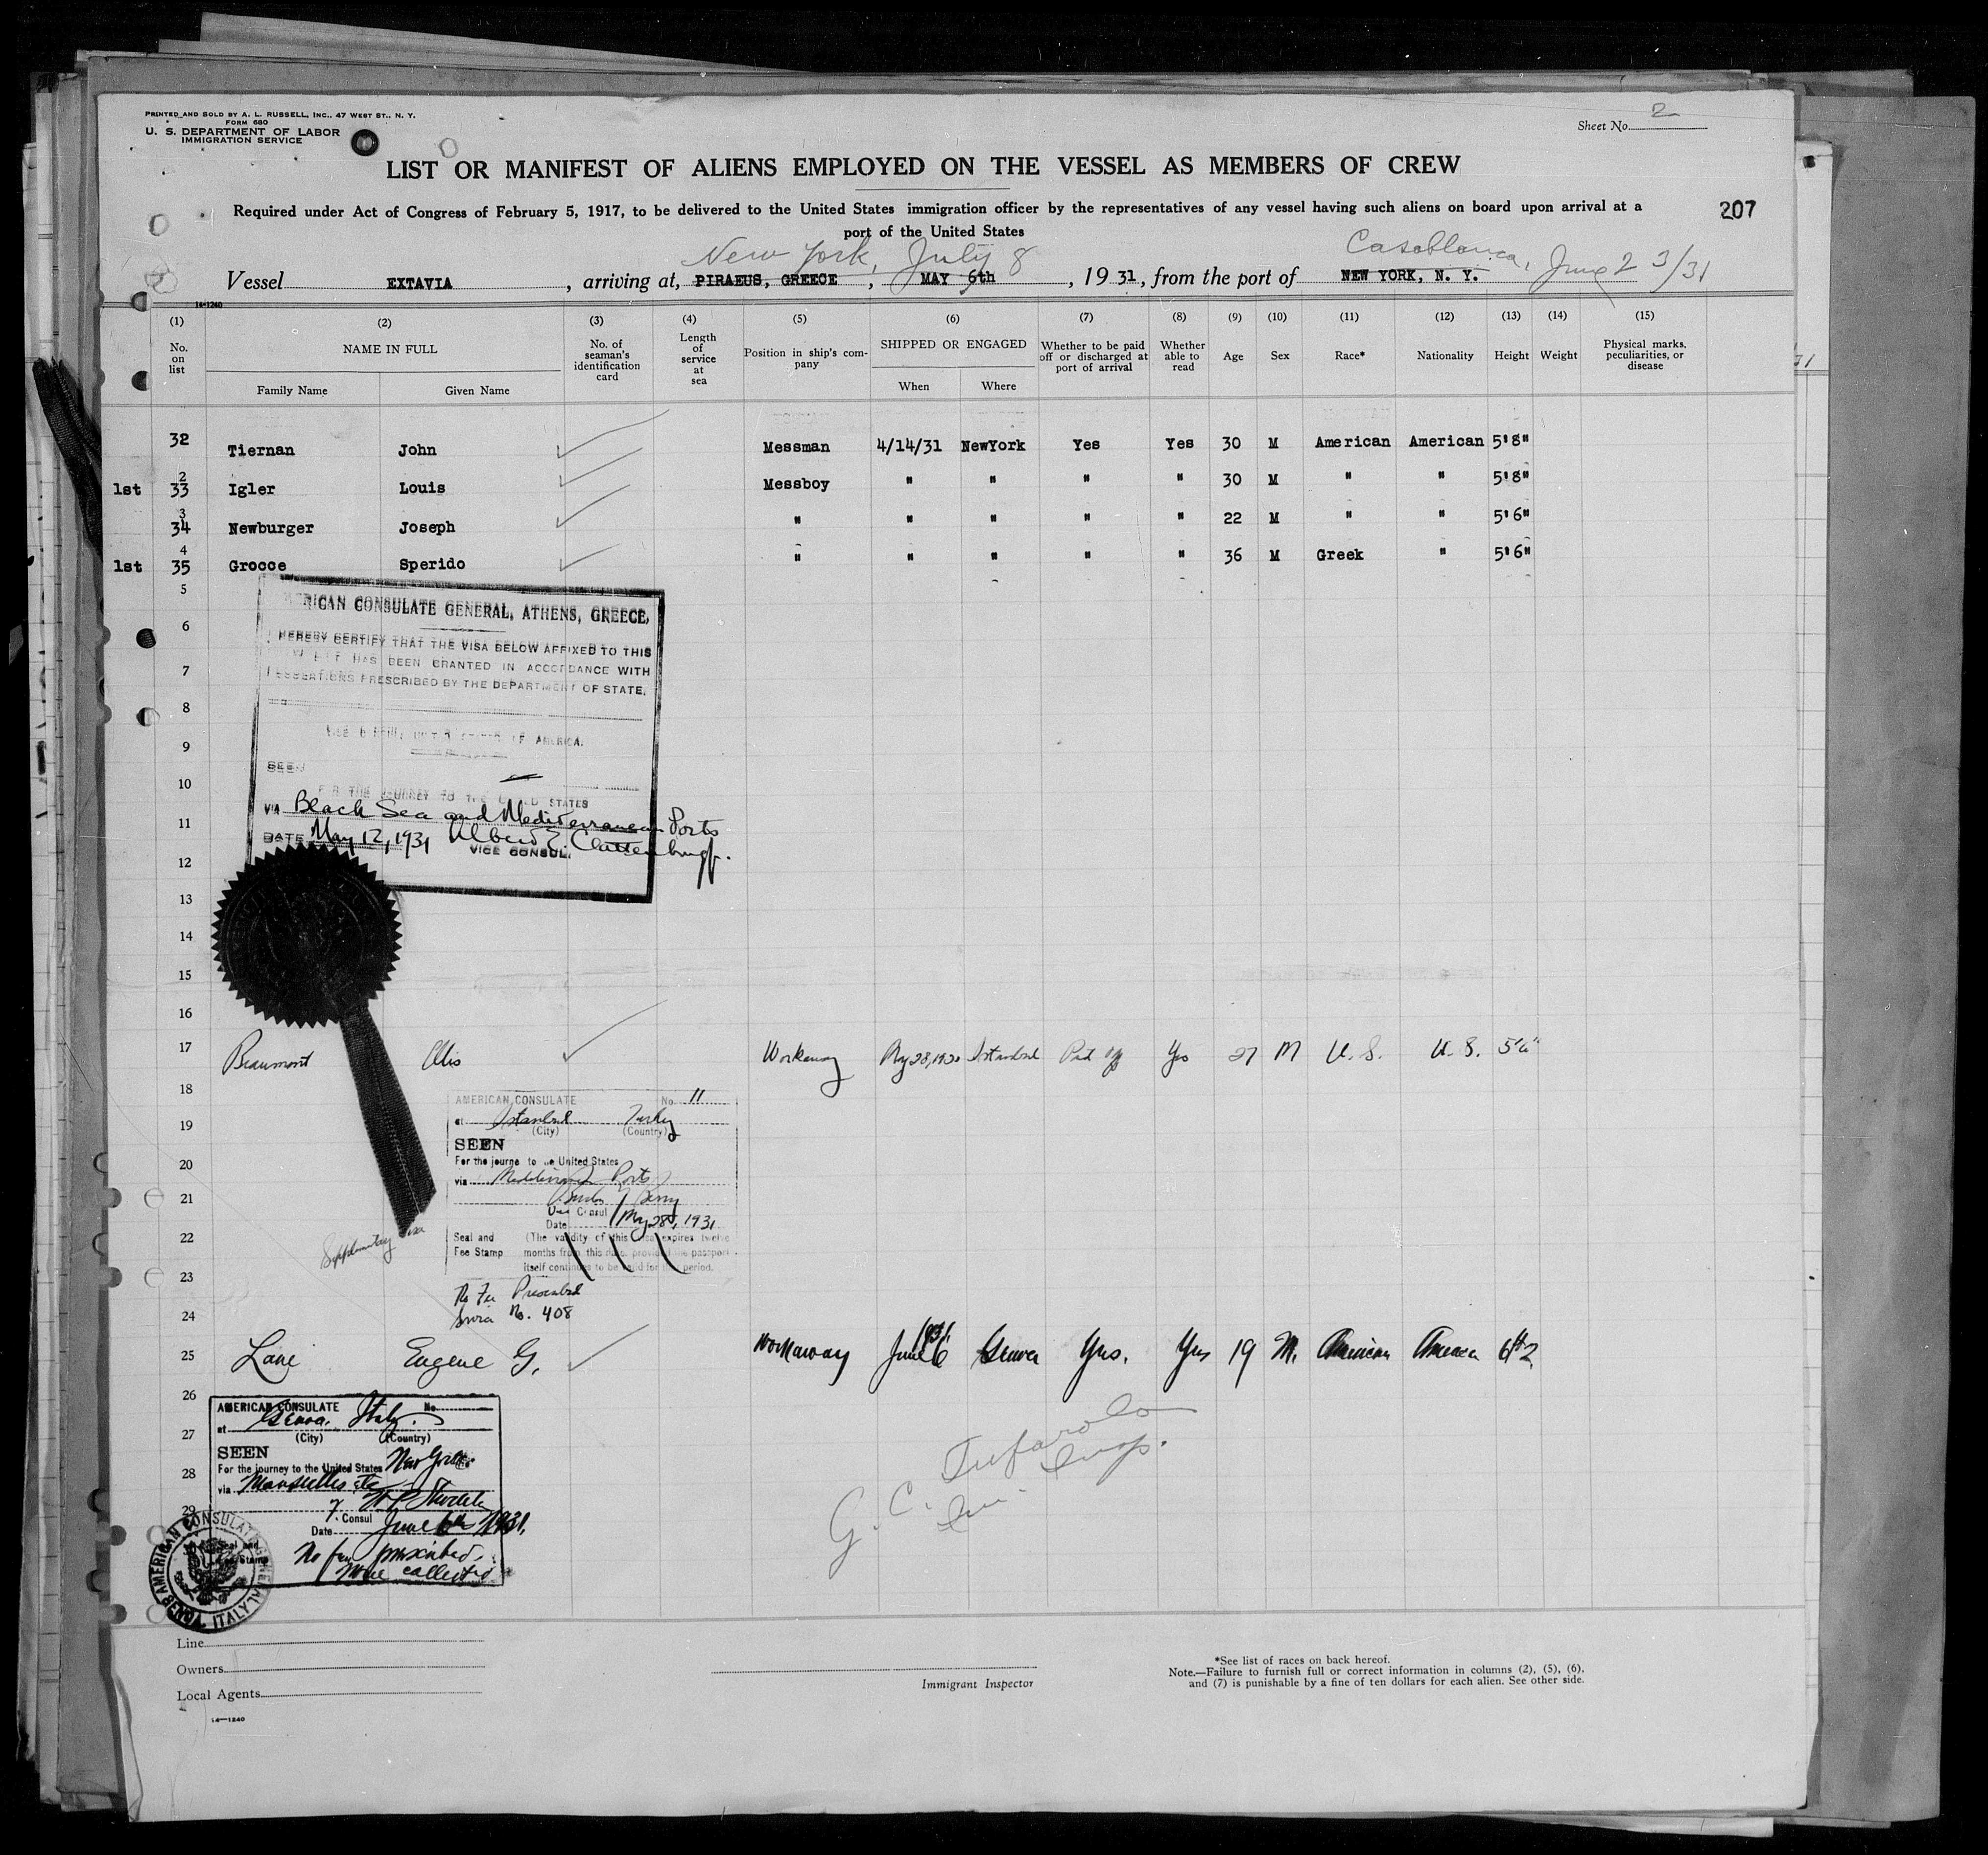 PRINTED AND SOLD BY A. L. RUSSELL, INC., 47 WEST ST., N. Y.
FORM 680
U. S. DEPARTMENT OF LABOR
IMMIGRATION SERVICE
Sheet No. 2
LIST OR MANIFEST OF ALIENS EMPLOYED ON THE VESSEL AS MEMBERS OF CREW
Required under Act of Congress of February 5, 1917, to be delivered to the United States immigration officer by the representatives of any vessel having such aliens on board upon arrival at a
port of the United States
207
New York, July 8 Casablanca, June 23/31
Vessel EXTAVIA, arriving at, PIRAEUS, GREECE, MAY 6th, 1931, from the port of NEW YORK, N. Y.
14-1240
(1) (2) (3) (4) (5) (6) (7) (8) (9) (10) (11) (12) (13) (14) (15)
No. on list NAME IN FULL No. of seaman's identification card Length of service at sea Position in ship's company SHIPPED OR ENGAGED Whether to be paid off or discharged at port of arrival Whether able to read Age Sex Race* Nationality Height Weight Physical marks, peculiarities, or disease
Family Name Given Name When Where
32 Tiernan John Messman 4/14/31 NewYork Yes Yes 30 M American American 5'8"
2
1st 33 Igler Louis Messboy " " " " 30 M " " 5'8"
3
34 Newburger Joseph " " " " " 22 M " " 5'6"
4
1st 35 Grocce Sperido " " " " " 36 M Greek " 5'6"
5
6
7
8
9
10
11
12
13
14
15
16
AMERICAN CONSULATE GENERAL, ATHENS, GREECE,
I HEREBY CERTIFY THAT THE VISA BELOW AFFIXED TO THIS
HAS BEEN GRANTED IN ACCORDANCE WITH
PRESCRIBED BY THE DEPARTMENT OF STATE.
OF AMERICA.
SEEN
FOR THE JOURNEY TO THE UNITED STATES
VIA Black Sea and Mediterranean Ports
DATE May 12, 1931 Albert E. Clattenburg Jr.
VICE CONSUL.
17 Beaumont Otis Workaway May 28, 1931 Istanbul Paid off Yes 27 M U. S. U. S. 5'6"
18
19
20
21
22
23
24
AMERICAN CONSULATE No. 11
at Istanbul Turkey
(City) (Country)
SEEN
For the journey to the United States
via Mediterranean Ports
Berry
Vice Consul
Date May 28, 1931
Seal and Fee Stamp
(The validity of this visa expires twelve
months from this date, provided the passport
itself continues to be valid for that period.
Supplementary visa
No Fee Prescribed
Service No. 408
25 Lane Eugene G. Workaway June 6 1931 Genoa Yes. Yes 19 M. American American 6ft 2
26
27
28
29
AMERICAN CONSULATE No.
at Genoa, Italy.
(City) (Country)
SEEN
For the journey to the United States New York
via Marseilles etc
V. Consul
Date June 6th 1931.
No fee prescribed.
None collected
Seal and
Fee Stamp
AMERICAN CONSULATE GENERAL
GENOA, ITALY
G. C. Tufarolo
Im. Insp.
Line
Owners
Local Agents
14-1240
Immigrant Inspector
*See list of races on back hereof.
Note.—Failure to furnish full or correct information in columns (2), (5), (6),
and (7) is punishable by a fine of ten dollars for each alien. See other side.